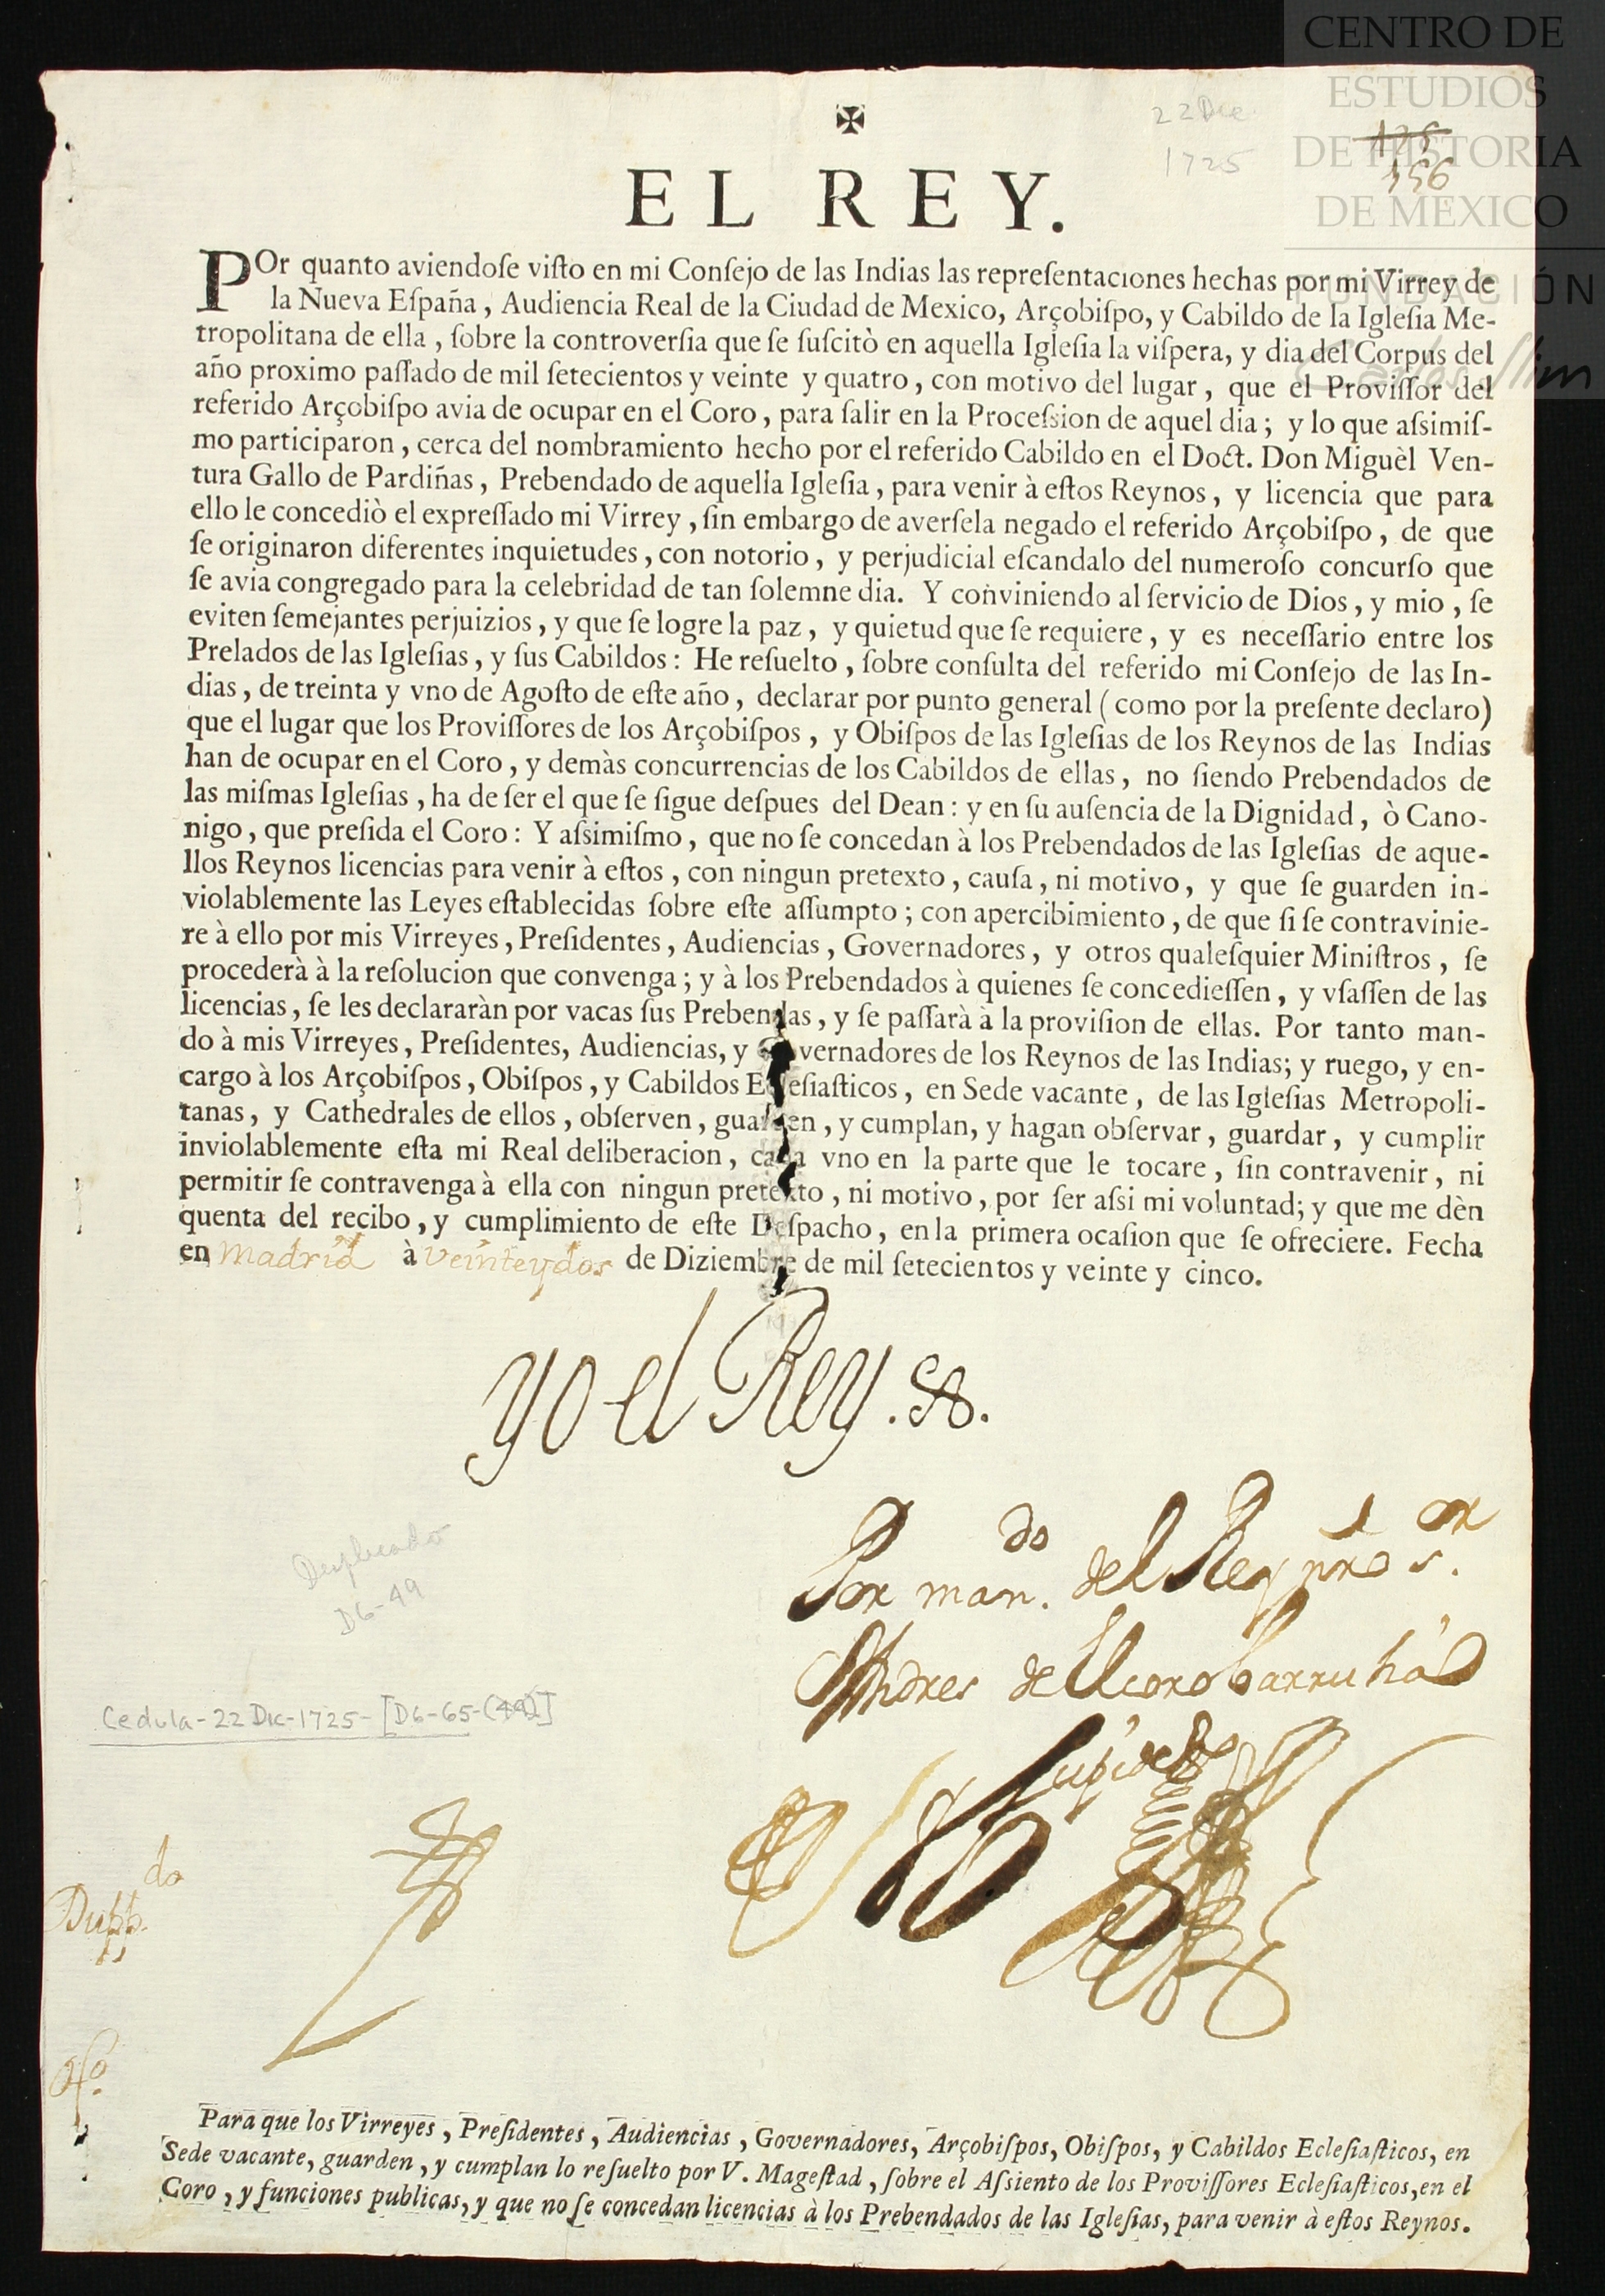 CENTRO DE
ESTUDIOS
DE HISTORIA
DE MEXICO
FUNDACIÓN
Carlos Slim
✠
22 Dic
1725
125
156
EL REY.
POr quanto aviendoſe viſto en mi Conſejo de las Indias las repreſentaciones hechas por mi Virrey de
la Nueva Eſpaña, Audiencia Real de la Ciudad de Mexico, Arçobiſpo, y Cabildo de la Igleſia Me-
tropolitana de ella, ſobre la controverſia que ſe ſuſcitò en aquella Igleſia la viſpera, y dia del Corpus del
año proximo paſſado de mil ſetecientos y veinte y quatro, con motivo del lugar, que el Proviſſor del
referido Arçobiſpo avia de ocupar en el Coro, para ſalir en la Proceſsion de aquel dia; y lo que aſsimiſ-
mo participaron, cerca del nombramiento hecho por el referido Cabildo en el Doct. Don Miguèl Ven-
tura Gallo de Pardiñas, Prebendado de aquella Igleſia, para venir à eſtos Reynos, y licencia que para
ello le concediò el expreſſado mi Virrey, ſin embargo de averſela negado el referido Arçobiſpo, de que
ſe originaron diferentes inquietudes, con notorio, y perjudicial eſcandalo del numeroſo concurſo que
ſe avia congregado para la celebridad de tan ſolemne dia. Y conviniendo al ſervicio de Dios, y mio, ſe
eviten ſemejantes perjuizios, y que ſe logre la paz, y quietud que ſe requiere, y es neceſſario entre los
Prelados de las Igleſias, y ſus Cabildos: He reſuelto, ſobre conſulta del referido mi Conſejo de las In-
dias, de treinta y vno de Agoſto de eſte año, declarar por punto general (como por la preſente declaro)
que el lugar que los Proviſſores de los Arçobiſpos, y Obiſpos de las Igleſias de los Reynos de las Indias
han de ocupar en el Coro, y demàs concurrencias de los Cabildos de ellas, no ſiendo Prebendados de
las miſmas Igleſias, ha de ſer el que ſe ſigue deſpues del Dean: y en ſu auſencia de la Dignidad, ò Cano-
nigo, que preſida el Coro: Y aſsimiſmo, que no ſe concedan à los Prebendados de las Igleſias de aque-
llos Reynos licencias para venir à eſtos, con ningun pretexto, cauſa, ni motivo, y que ſe guarden in-
violablemente las Leyes eſtablecidas ſobre eſte aſſumpto; con apercibimiento, de que ſi ſe contravinie-
re à ello por mis Virreyes, Preſidentes, Audiencias, Governadores, y otros qualeſquier Miniſtros, ſe
procederà à la reſolucion que convenga; y à los Prebendados à quienes ſe concedieſſen, y vſaſſen de las
licencias, ſe les declararàn por vacas ſus Prebendas, y ſe paſſarà à la proviſion de ellas. Por tanto man-
do à mis Virreyes, Preſidentes, Audiencias, y Governadores de los Reynos de las Indias; y ruego, y en-
cargo à los Arçobiſpos, Obiſpos, y Cabildos Ecleſiaſticos, en Sede vacante, de las Igleſias Metropoli-
tanas, y Cathedrales de ellos, obſerven, guarden, y cumplan, y hagan obſervar, guardar, y cumplir
inviolablemente eſta mi Real deliberacion, cada vno en la parte que le tocare, ſin contravenir, ni
permitir ſe contravenga à ella con ningun pretexto, ni motivo, por ſer aſsi mi voluntad; y que me dèn
quenta del recibo, y cumplimiento de eſte Deſpacho, en la primera ocaſion que ſe ofreciere. Fecha
en Madrid à veinteydos de Diziembre de mil ſetecientos y veinte y cinco.
yo el Rey.
Por man.do del Rey nro s.or
Andres de Elcorobarrutia
y Zupide
Deſplicado
D6-49
Cedula-22 Dic-1725-[D6-65-(49)]
Dupp.do
Para que los Virreyes, Preſidentes, Audiencias, Governadores, Arçobiſpos, Obiſpos, y Cabildos Ecleſiaſticos, en
Sede vacante, guarden, y cumplan lo reſuelto por V. Mageſtad, ſobre el Aſsiento de los Proviſſores Ecleſiaſticos, en el
Coro, y funciones publicas, y que no ſe concedan licencias à los Prebendados de las Igleſias, para venir à eſtos Reynos.